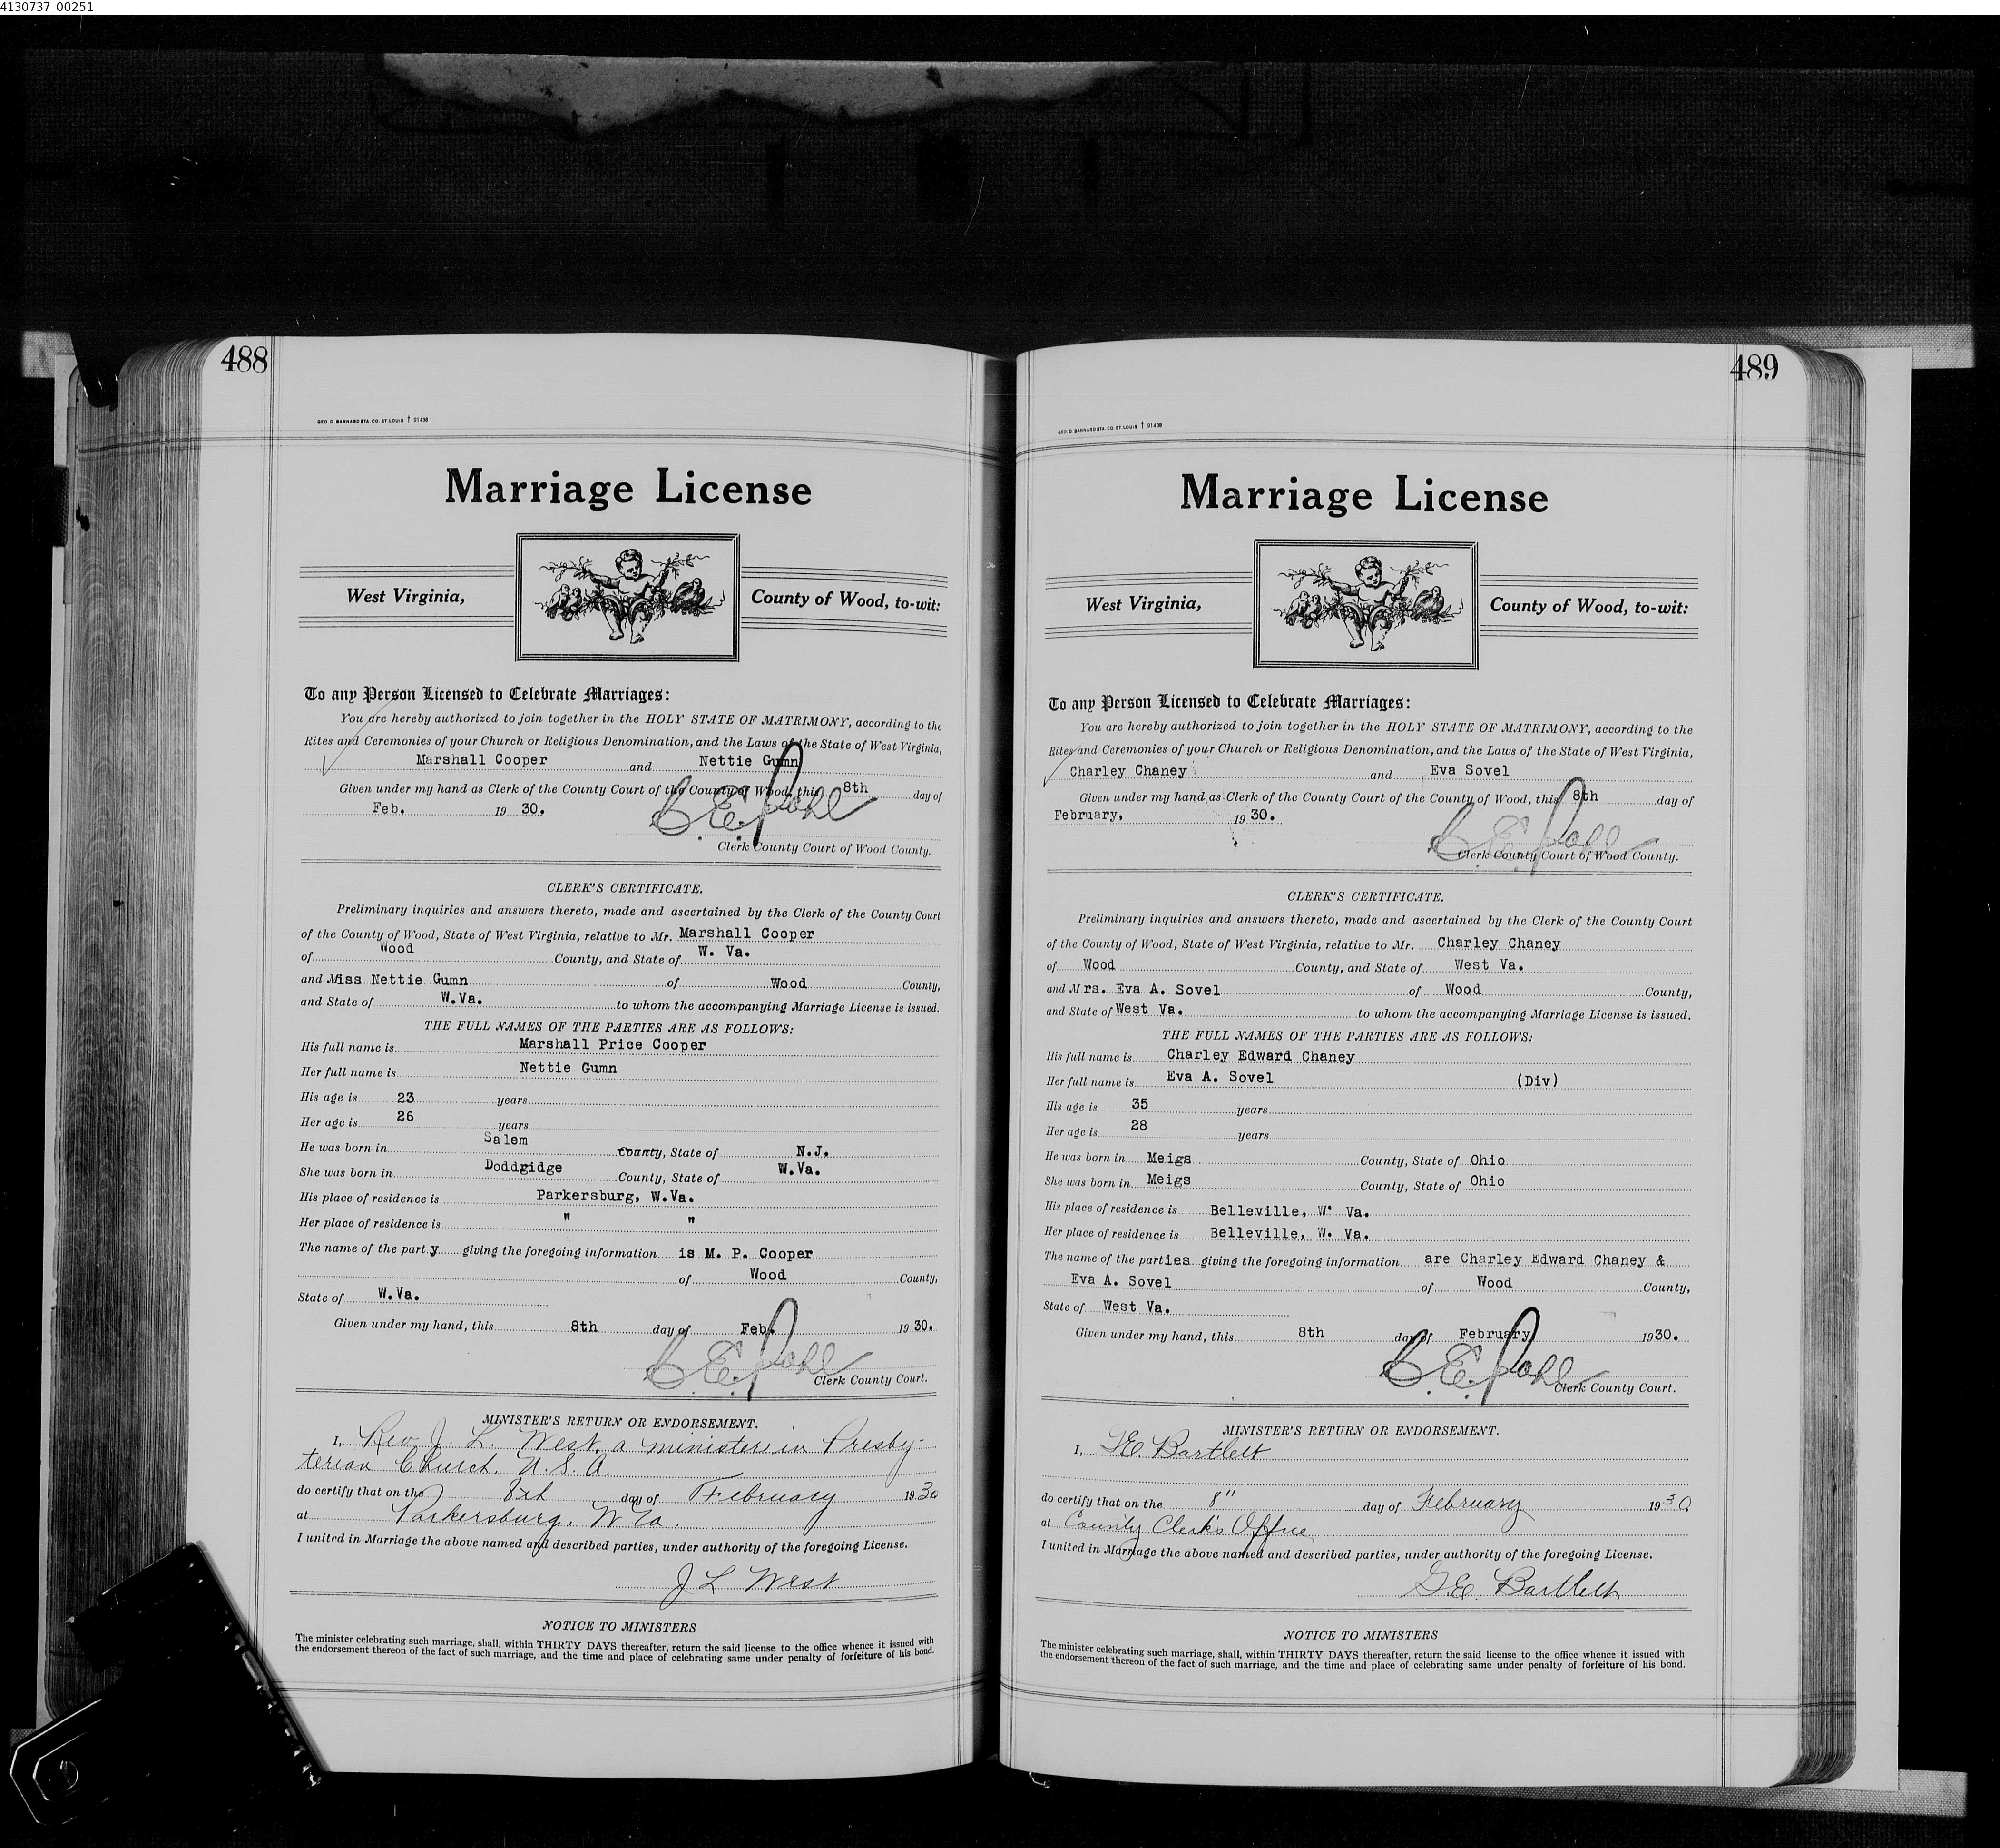 4130737_00251
488
GEO. D. BARNARD STA. CO. ST. LOUIS † 91438
Marriage License
West Virginia,
County of Wood, to-wit:
To any Person Licensed to Celebrate Marriages:
You are hereby authorized to join together in the HOLY STATE OF MATRIMONY, according to the
Rites and Ceremonies of your Church or Religious Denomination, and the Laws of the State of West Virginia,
Marshall Cooper and Nettie Gumn
Given under my hand as Clerk of the County Court of the County of Wood, this 8th day of
Feb. 1930.
Clerk County Court of Wood County.
CLERK'S CERTIFICATE.
Preliminary inquiries and answers thereto, made and ascertained by the Clerk of the County Court
of the County of Wood, State of West Virginia, relative to Mr. Marshall Cooper
of Wood County, and State of W. Va.
and Miss Nettie Gumn of Wood County,
and State of W.Va. to whom the accompanying Marriage License is issued.
THE FULL NAMES OF THE PARTIES ARE AS FOLLOWS:
His full name is Marshall Price Cooper
Her full name is Nettie Gumn
His age is 23 years
Her age is 26 years
He was born in Salem County, State of N.J.
She was born in Doddgidge County, State of W.Va.
His place of residence is Parkersburg, W.Va.
Her place of residence is " "
The name of the party giving the foregoing information is M. P. Cooper
of Wood County,
State of W.Va.
Given under my hand, this 8th day of Feb. 1930.
Clerk County Court.
MINISTER'S RETURN OR ENDORSEMENT.
I, Rev. J. L. West, a minister in Presby-
terian Church. U.S.A.
do certify that on the 8th day of February 1930
at Parkersburg, W Va.
I united in Marriage the above named and described parties, under authority of the foregoing License.
J L West
NOTICE TO MINISTERS
The minister celebrating such marriage, shall, within THIRTY DAYS thereafter, return the said license to the office whence it issued with
the endorsement thereon of the fact of such marriage, and the time and place of celebrating same under penalty of forfeiture of his bond.
489
GEO. D. BARNARD STA. CO. ST. LOUIS † 91438
Marriage License
West Virginia,
County of Wood, to-wit:
To any Person Licensed to Celebrate Marriages:
You are hereby authorized to join together in the HOLY STATE OF MATRIMONY, according to the
Rites and Ceremonies of your Church or Religious Denomination, and the Laws of the State of West Virginia,
Charley Chaney and Eva Sovel
Given under my hand as Clerk of the County Court of the County of Wood, this 8th day of
February, 1930.
Clerk County Court of Wood County.
CLERK'S CERTIFICATE.
Preliminary inquiries and answers thereto, made and ascertained by the Clerk of the County Court
of the County of Wood, State of West Virginia, relative to Mr. Charley Chaney
of Wood County, and State of West Va.
and Mrs. Eva A. Sovel of Wood County,
and State of West Va. to whom the accompanying Marriage License is issued.
THE FULL NAMES OF THE PARTIES ARE AS FOLLOWS:
His full name is Charley Edward Chaney
Her full name is Eva A. Sovel (Div)
His age is 35 years
Her age is 28 years
He was born in Meigs County, State of Ohio
She was born in Meigs County, State of Ohio
His place of residence is Belleville, W. Va.
Her place of residence is Belleville, W. Va.
The name of the parties giving the foregoing information are Charley Edward Chaney &
Eva A. Sovel of Wood County,
State of West Va.
Given under my hand, this 8th day of February 1930.
Clerk County Court.
MINISTER'S RETURN OR ENDORSEMENT.
I, G.E. Bartlett
do certify that on the 8" day of February 1930
at County Clerk's Office
I united in Marriage the above named and described parties, under authority of the foregoing License.
G.E. Bartlett
NOTICE TO MINISTERS
The minister celebrating such marriage, shall, within THIRTY DAYS thereafter, return the said license to the office whence it issued with
the endorsement thereon of the fact of such marriage, and the time and place of celebrating same under penalty of forfeiture of his bond.